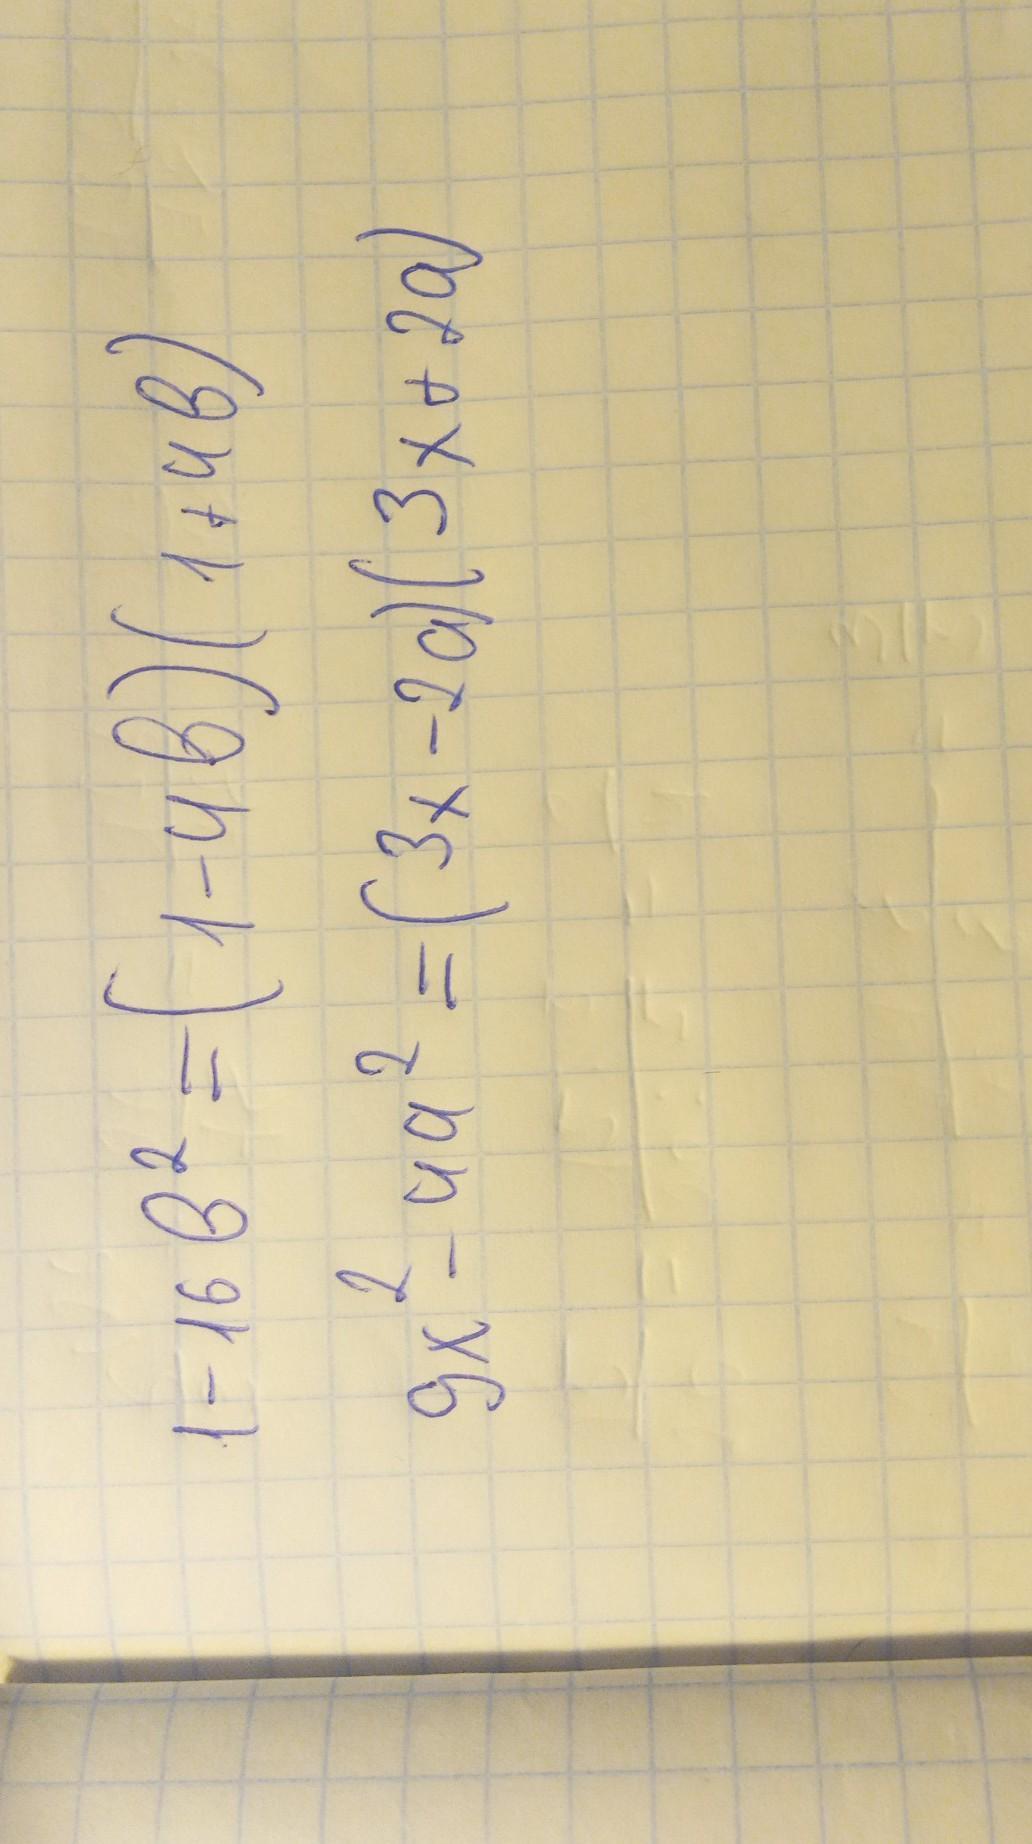 1-16в²=(1-4в)(1+4в)
9x²-4a²=(3x-2a)(3x+2a)